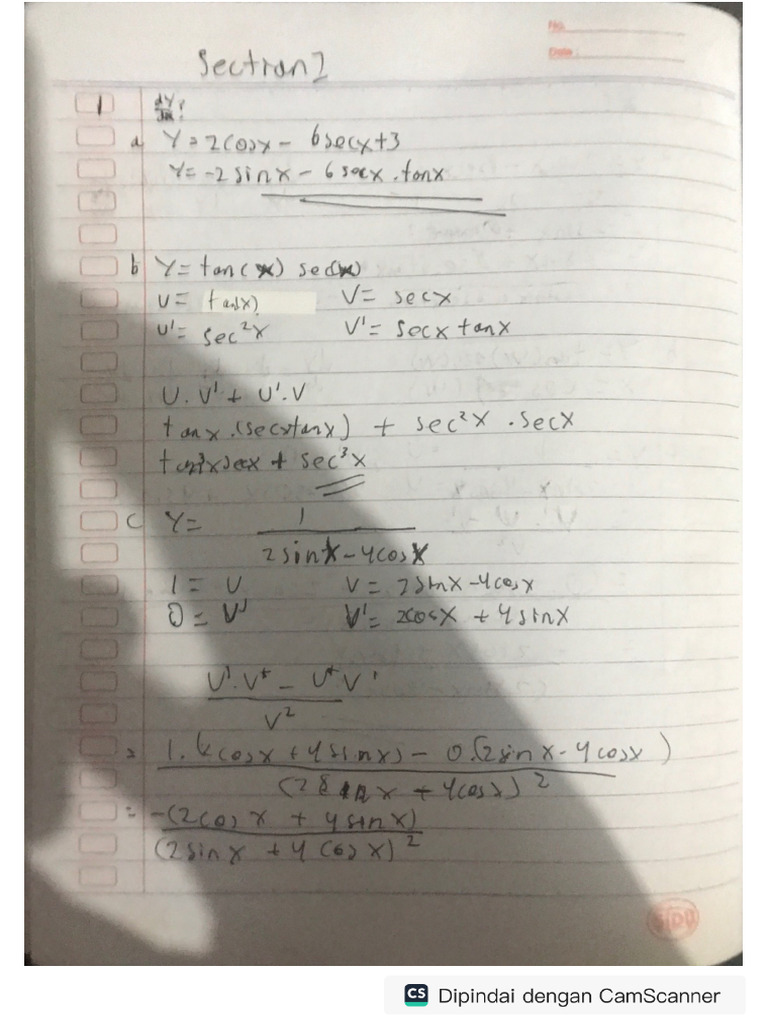 No.
Date:
Section 2
1 dy/dx?
a Y = 2cosx - 6secx+3
Y = -2 sinx - 6 secx . tanx
b Y = tan(x) sec(x)
U = tan(x) V = secx
U' = sec²x V' = secx tanx
U . V' + U' . V
tanx . (secxtanx) + sec²x . secx
secx + sec³x
c Y = 1
2 sinx - 4cosx
1 = U V = 2sinx - 4cosx
0 = V' = 2cosx + 4sinx
U' . V - U V'
V²
= 1. (2cosx + 4sinx) - 0.(2sinx - 4cosx)
(2 sinx + 4cosx)²
= -(2cosx + 4sinx)
(2sinx + 4cosx)²
SIDU
CS Dipindai dengan CamScanner